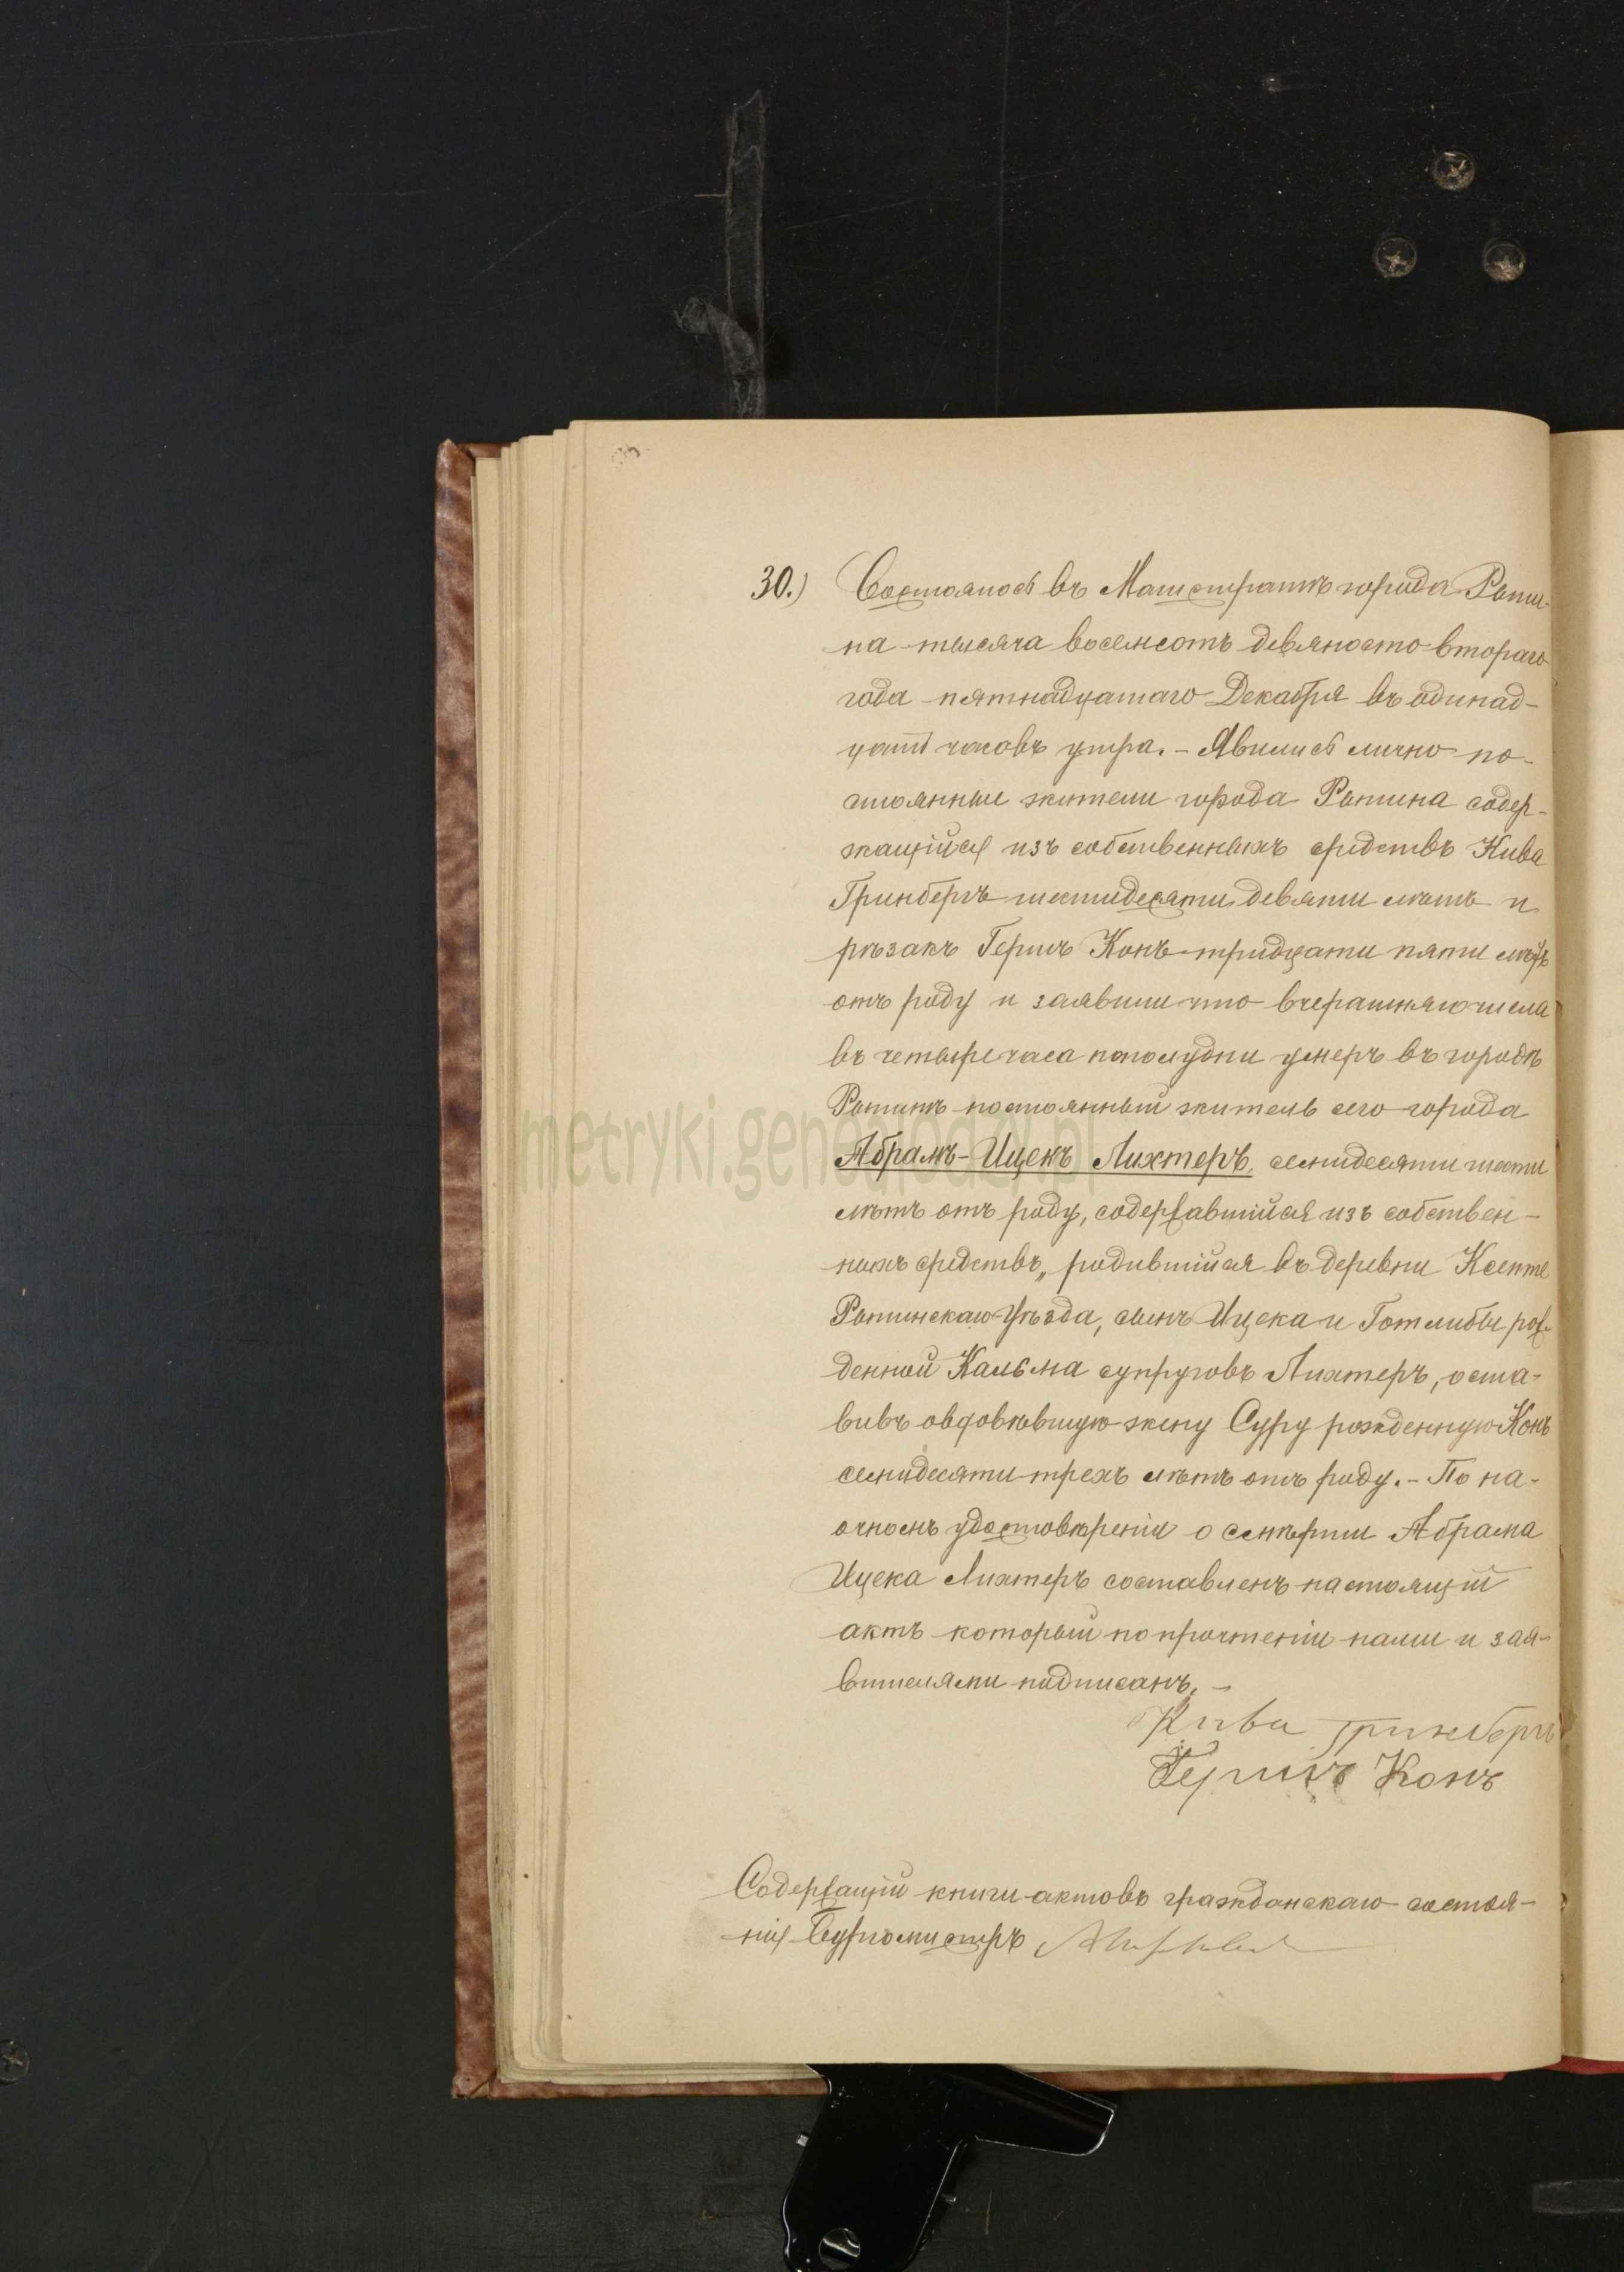 30.) Состоялось въ Магистратѣ города Рыпи-
на тысяча восемсотъ девяносто втораго
года пятнадцатаго Декабря въ одинад-
цать часовъ утра. - Явились лично по-
стоянные жители города Рыпина содер-
жащійся изъ собственныхъ средствъ Кива
Гринбергъ шестидесяти девяти лѣтъ и
рѣзакъ Гершъ Конъ тридцати пяти лѣтъ
отъ роду и заявили что вчерашняго числа
въ четыре часа пополудни умеръ въ городѣ
Рыпинѣ постоянный житель сего города
metryki.genealodzy.pl
Абрамъ-Ицекъ Лихтеръ, семидесяти шести
лѣтъ отъ роду, содержавшійся изъ собствен-
ныхъ средствъ, родившійся въ деревни Ксенте
Рыпинскаго Уѣзда, сынъ Ицека и Готлибы рож-
денной Кальма супруговъ Лихтеръ, оста-
вивъ овдовѣвшую жену Суру рожденную Конъ
семидесяти трехъ лѣтъ отъ роду. - По на-
очномъ удостовѣреніи о смерти Абрама
Ицека Лихтеръ составленъ настоящій
актъ который по прочтеніи нами и зая-
вителями подписанъ. -
Кива Гринбергъ
Гершъ Конъ
Содержащій книги актовъ гражданскаго состоя-
нія Бургомистръ